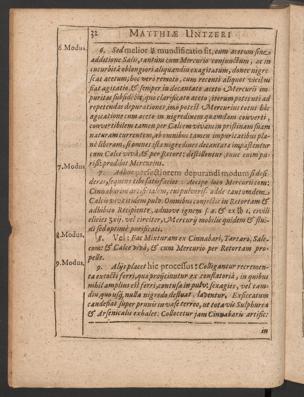 32 MATTHIÆ UNTZERI
6. Modus.
6. Sed melior & mundificatio fit, cum acetum sine
additione Salis, tantum cum Mercurio conjunctum, ac in
cucurbita oblongiori aliquandiu exagitatum, donec nigre-
scat acetum; hoc vero remoto, cum recenti aliquot vicibus
fiat agitatio, & semper in decantato aceto Mercurii im-
puritas subsidebit, quo clarificato aceto iterum poteris uti ad
repetendas depurationes,
agitatione cum aceto in nigredinem quamdam converti,
convertibilem tamen per Calcem vivam in pristinam suam
naturam currentem, ab omnibus tamen impuritatibus pla-
ne liberam, si omnes istæ nigredines decantatæ impastentur
cum Calce vivâ, & per Retort: destillentur, tunc enim pu-
riss: prodit Mercurius.
7. Modus.
7. Adhuc perfectiorem depurandi modum si desi-
deras, sequens tibi satisfaciet: Accipe loco Mercurii com:
Cinnabarim
Calcis vivæ tantundem pulv. Omnibus conjectis in Retortam &
adhibito Recipiente, admove ignem
Mercurij mobile quidem & flui-
di sed optimè purificati.
8. Modus.
8. Vel: Fac Mixturam ex Cinnabari, Tartaro, Sale
com: & Calce vivâ, & cum Mercurio per Retortam pro-
pelle.
9. Modus.
9. Alijs placet hic processus: Colligantur recremen-
ta extusi ferri, quæ projiciuntur ex
nihil amplius est ferri, contusa in pulv: sexagies, vel tam-
diu, quousq; nulla nigredo defluat, laventur. Exsiccatum
candefiat super prunis in vase terreo, ut tota vis Sulphurea
& Arsenicalis exhalet. Collocetur jam Cinnabaris artific:
in